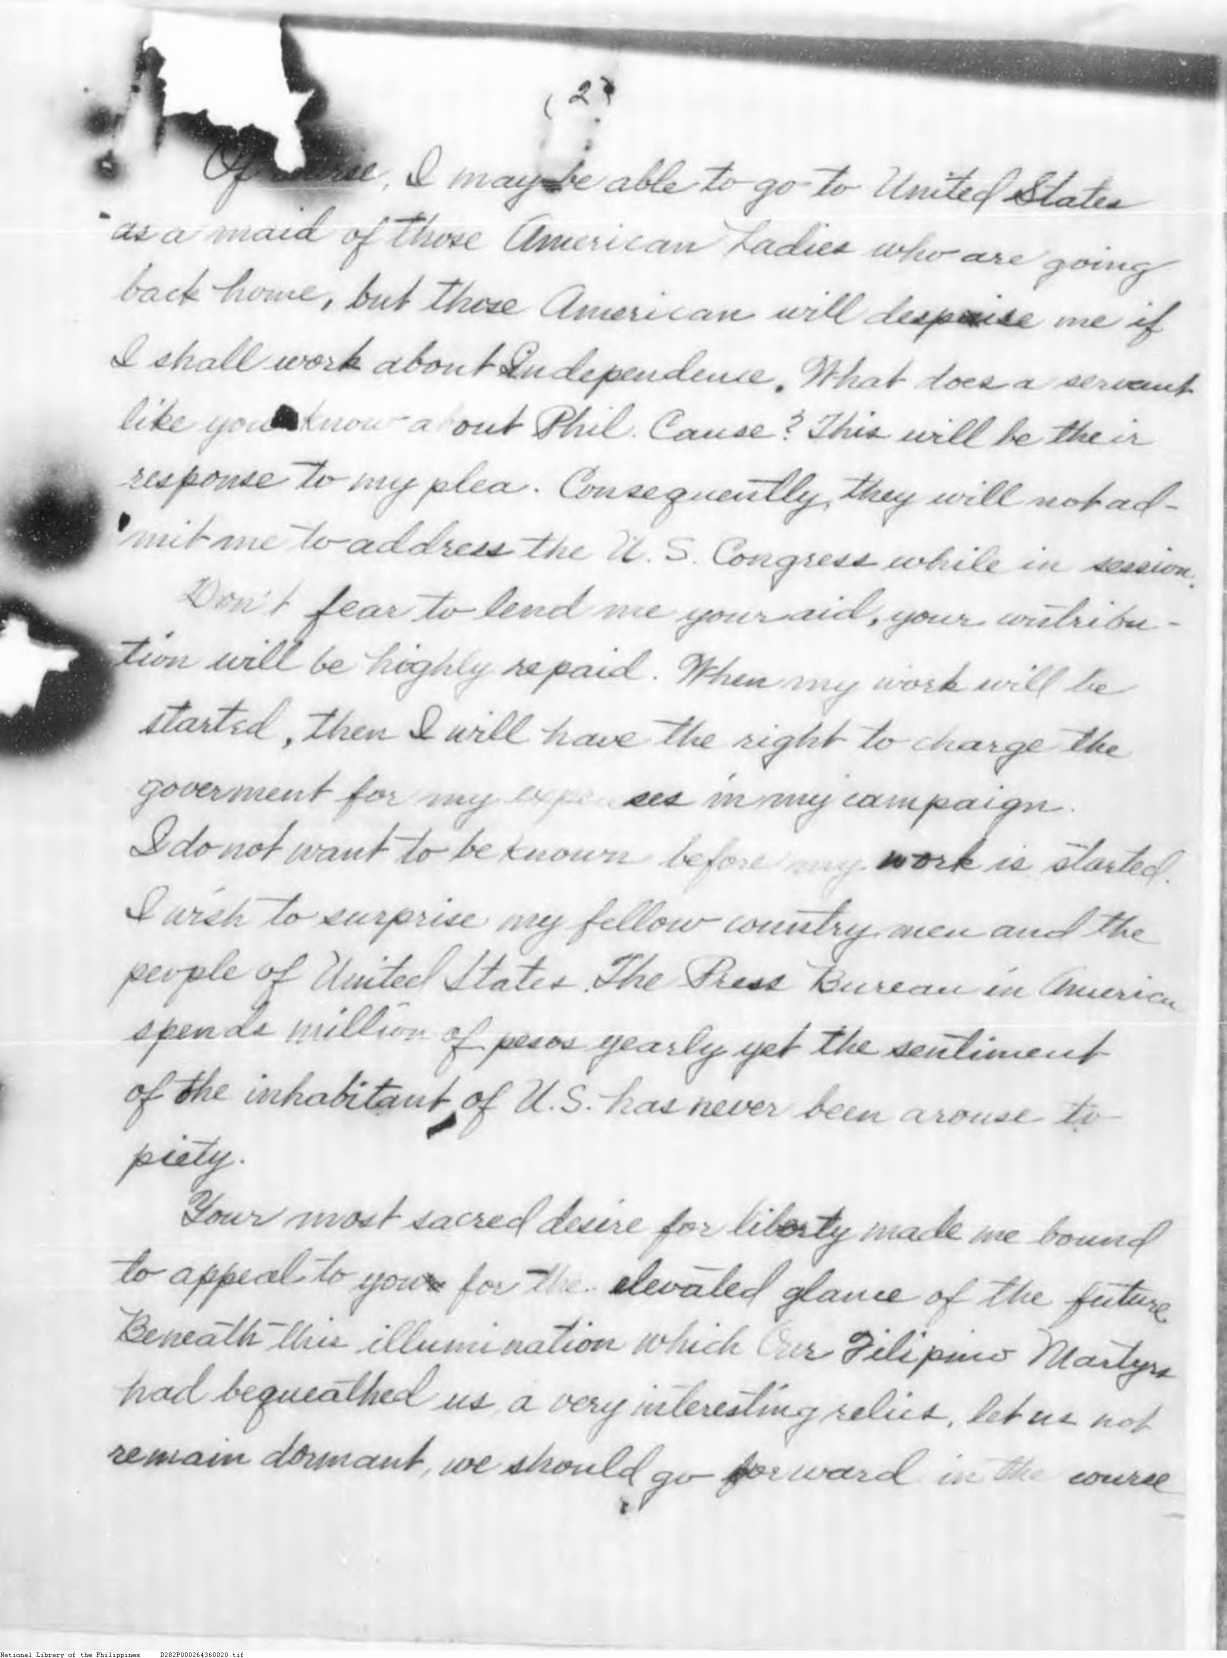 (2)
Of course, I may be able to go to United States
as a maid of those American Ladies who are going
back home, but those American will despise me if
I shall work about Independence. What does a servant
like you know about Phil. Cause? This will be their
response to my plea. Consequently, they will not ad-
mit me to address the U.S. Congress while in session.
Don't fear to lend me your aid, your contribu-
tion will be highly repaid. When my work will be
started, then I will have the right to charge the
goverment for my expenses in my campaign.
I do not want to be known before my work is started.
I wish to surprise my fellow country men and the
people of United States. The Press Bureau in America
spends million of pesos yearly yet the sentiment
of the inhabitant of U.S. has never been arouse to
piety.
Your most sacred desire for liberty made me bound
to appeal to you for the elevated glance of the future
Beneath this illumination which Our Filipino Martyrs
had bequeathed us, a very interesting relics, let us not
remain dormant, we should go forward in the course
National Library of the Philippines D282P000264360020.tif